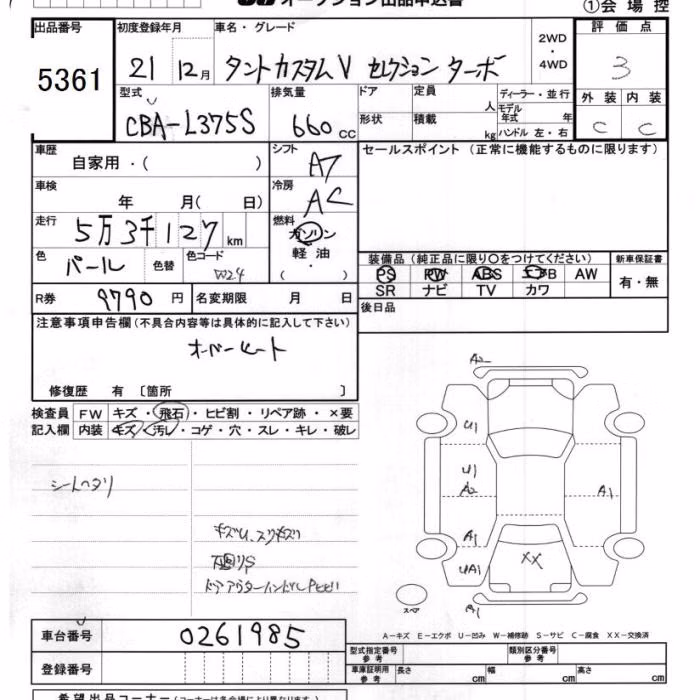 オークション出品申込書
①会場控
出品番号 初度登録年月 車名・グレード 2WD・4WD 評価点
5361 21 12月 タントカスタムV セレクション ターボ 3
型式 排気量 ドア 定員 人 ディーラー・並行 外装 内装
CBA-L375S 660cc 形状 積載 kg モデル年式 年 ハンドル 左・右 C C
車歴 シフト セールスポイント (正常に機能するものに限ります)
自家用・( ) A7
車検 年 月( 日) 冷房 AC
走行 5万3千127km 燃料 ガソリン
色 パール 色替 色コード W24 軽油 ( )
装備品 (純正品に限り○をつけてください) 新車保証書
PS PW ABS エアB AW 有・無
SR ナビ TV カワ
R券 9790円 名変期限 月 日 後日品
注意事項申告欄(不具合内容等は具体的に記入して下さい)
オーバーヒート
修復歴 有 〔箇所 〕
検査員 FW キズ・飛石・ヒビ割・リペア跡・×要
記入欄 内装 キズ・汚レ・コゲ・穴・スレ・キレ・破レ
シートヘタリ
キズU、スリキズ
下廻りS
ドアアウターハンドル
A2
U1
U1
A2
A1
A1
UA1
XX
スペア
A1
A-キズ E-エクボ U-凹み W-補修跡 S-サビ C-腐食 XX-交換済
車台番号 0261985
型式指定番号 参考 類別区分番号 参考
登録番号
車庫証明用 参考 長さ cm 幅 cm 高さ cm
希望出品コーナー(コーナーは各会場により異なります)